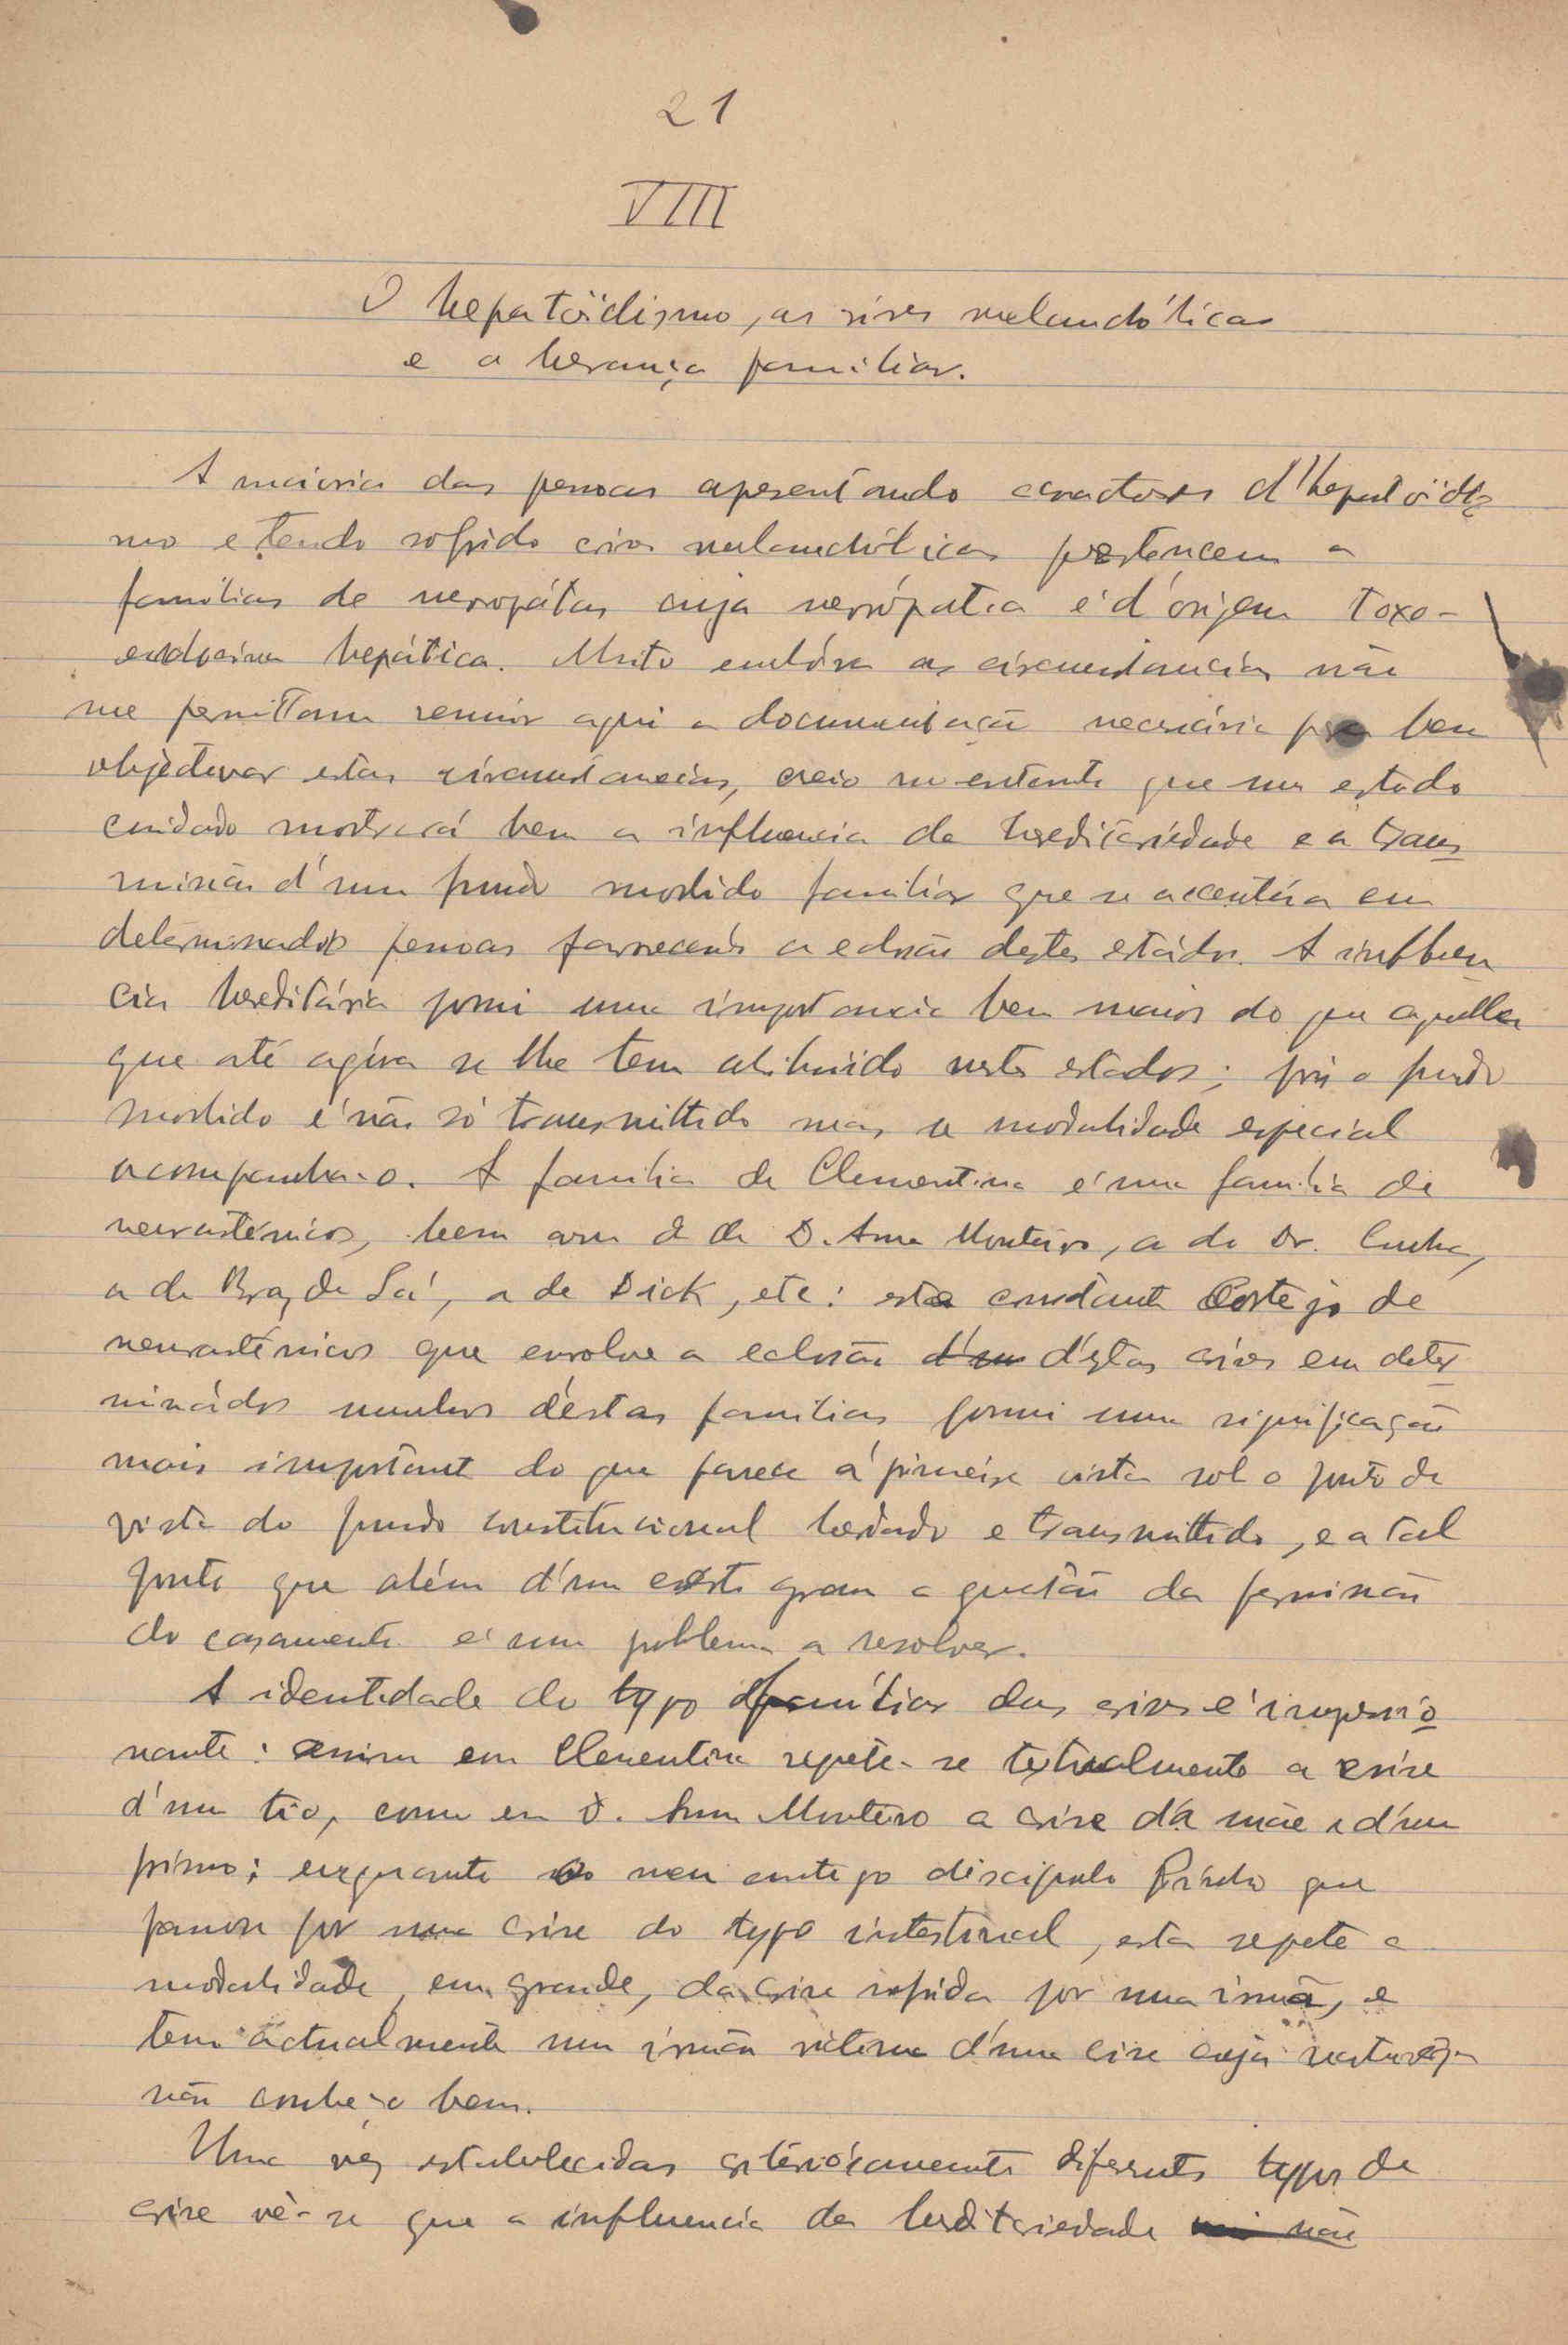 21
VIII
O hepatoïdismo, as crises melancólicas
e a herança familiar.
A maioria das pessoas apresentando caracteres d'hepatoïdis
mo e tendo sofrido crises melancólicas pertencem a
famílias de nevropátas cuja nevrópatia é d'origem toxo-
endocrina hepática. Muito embóra as circumstancias não
me permittam reunir aqui a documentação necessária para bem
objètivar estas circumstancias, creio no entanto que um estudo
cuidado mostrará bem a influencia da hereditariedade e a trans
missão d'um fundo mórbido familiar que se accentúa em
determinados pessoas favorecendo a eclosão destes estádos. A influen
cia hereditária possui uma importancia bem maior do que aquella
que até agóra se lhe tem atribuido nestes estados; pois o fundo
morbido é não só transmittido mas a modalidade especial
acompanha-o. A familia de Clementina é uma familia de
neurasténicos, bem como a de D. Anna Monteiro, a do Dr. Cunha,
a de Braz de Sá, a de Dick, etc: este constante cortejo de
neurasténicos que envolve a eclosão d'um d'estas crises em deter
minádos membros déstas familias possui uma significação
mais importante do que parece á primeira vista sob o ponto de
vista do fundo constitucional herdado e transmittido, e a tal
ponto que além d'um certo grau a questão da permissão
do casamento é um problema a resolver.
A identidade do typo familiar das crises é impressio
nante: assim em Clementina repete-se textualmente a crise
d'um tio, como em D. Anna Monteiro a crise da mãe e d'um
primo; emquanto no meu antigo discipulo que
passou por uma crise do typo intestinal, esta repete a
modalidade, em grande, da crise sofrida por uma irmã, e
tem actualmente um irmão victima d'uma crise cuja natureza
não conheço bem.
Uma vez estabelecidas criteriósamente diferentes typos de
crise vê-se que a influencia da hereditariedade não